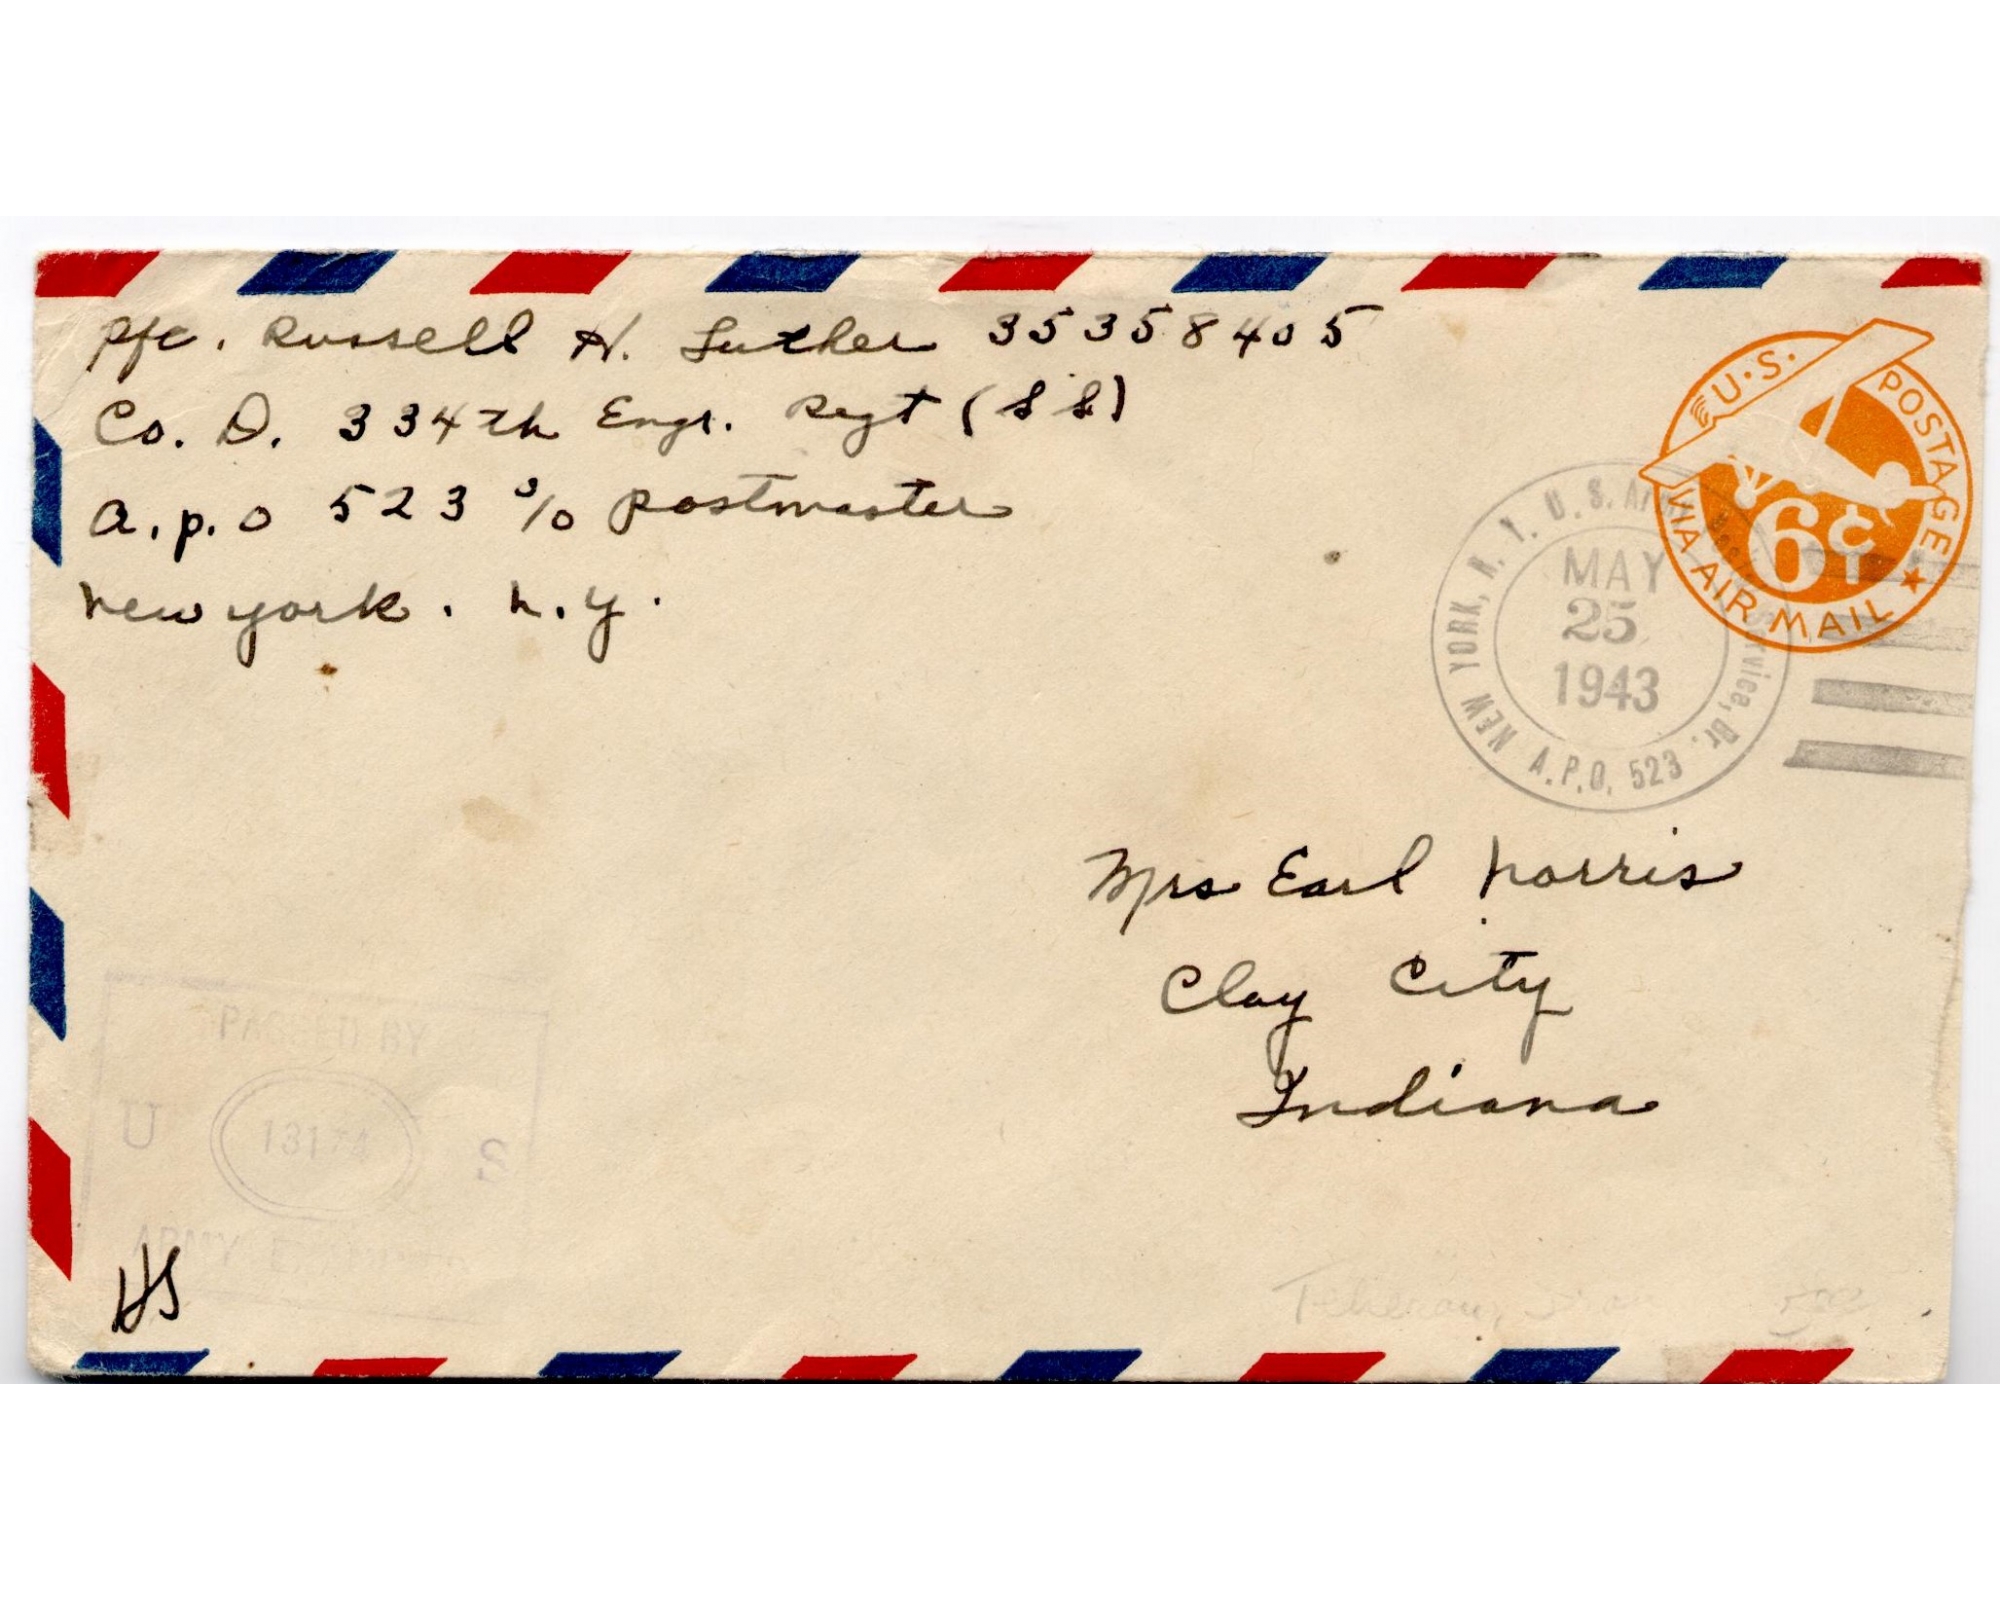 Pfc. Russell H. Luther 35358405
Co. D. 334th Engr. Regt (SS)
A.P.O 523 c/o Postmaster
New York. N.Y.
U.S. POSTAGE
6¢
VIA AIR MAIL
NEW YORK, N.Y. U.S. Army Postal Service, Br.
MAY
25
1943
A.P.O. 523
Mrs Earl Norris
Clay City
Indiana
PASSED BY
U 13174 S
ARMY EXAMINER
HS
Teheran, Iran